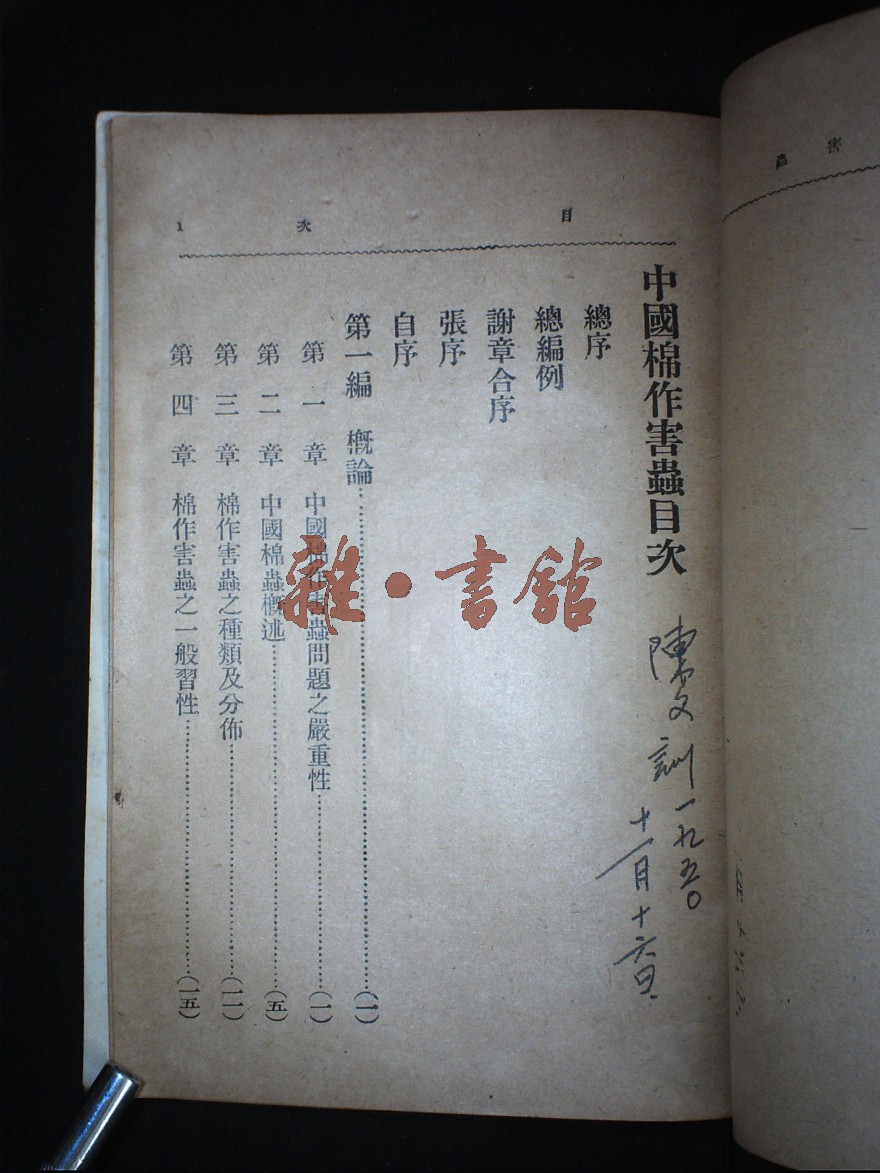 目次 1
中國棉作害蟲目次
陳文訓 一九五〇
十一月十六日
總序
總編例
謝章合序
張序
自序
第一編 概論……(一)
第一章 中國棉作害蟲問題之嚴重性……(一)
第二章 中國棉蟲概述……(五)
第三章 棉作害蟲之種類及分佈……(一一)
第四章 棉作害蟲之一般習性……(一五)
雜·書館
害蟲